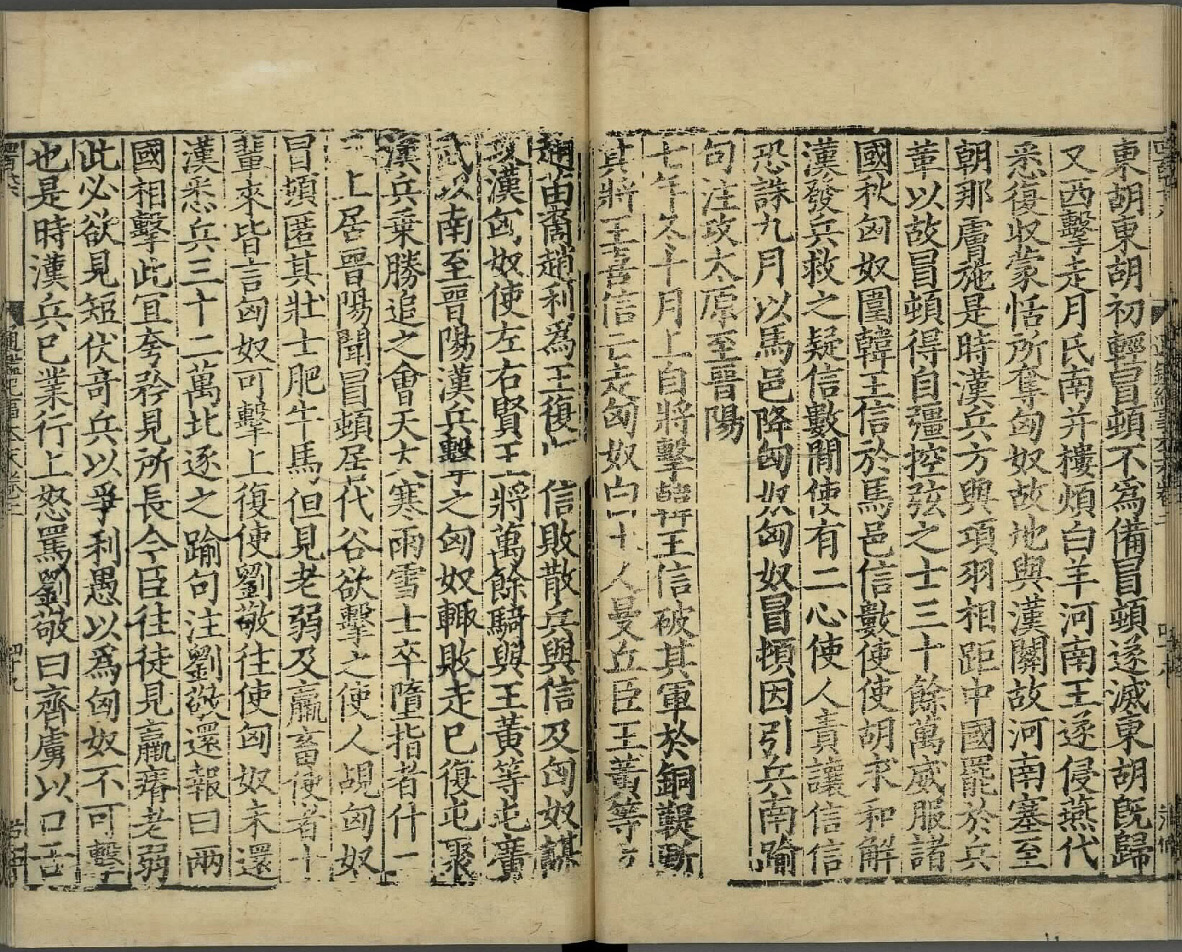 東胡東胡初輕冒頓不爲備冒頓遂滅東胡旣歸
又西擊走月氏南并樓煩白羊河南王遂侵燕代
悉復收蒙恬所奪匈奴故地與漢關故河南塞至
朝那膚施是時漢兵方與項羽相距中國罷於兵
革以故冒頓得自彊控弦之士三十餘萬威服諸
國秋匈奴圍韓王信於馬邑信數使使胡求和解
漢發兵救之疑信數間使有二心使人責讓信信
恐誅九月以馬邑降匈奴匈奴冒頓因引兵南踰
句注攻太原至晉陽
七年冬十月上自將擊韓王信破其軍於銅鞮斬
其將王喜信亡走匈奴白土人曼丘臣王黃等
趙苗裔趙利爲王復 信敗散兵與信及匈奴謀
攻漢匈奴使左右賢王將萬餘騎與王黃等屯廣
武以南至晉陽漢兵擊之匈奴輙敗走已復屯聚
漢兵乗勝追之會天大寒雨雪士卒墮指者什
二 上居晉陽聞冒頓居代谷欲擊之使人覘匈奴
冒頓匿其壯士肥牛馬但見老弱及羸畜使者十
輩來皆言匈奴可擊上復使劉敬往使匈奴未還
漢悉兵三十二萬北逐之踰句注劉敬還報曰兩
國相擊此宜夸矜見所長今臣往徒見羸瘠老弱
此必欲見短伏奇兵以爭利愚以爲匈奴不可擊
也是時漢兵已業行上怒罵劉敬曰齊虜以口舌